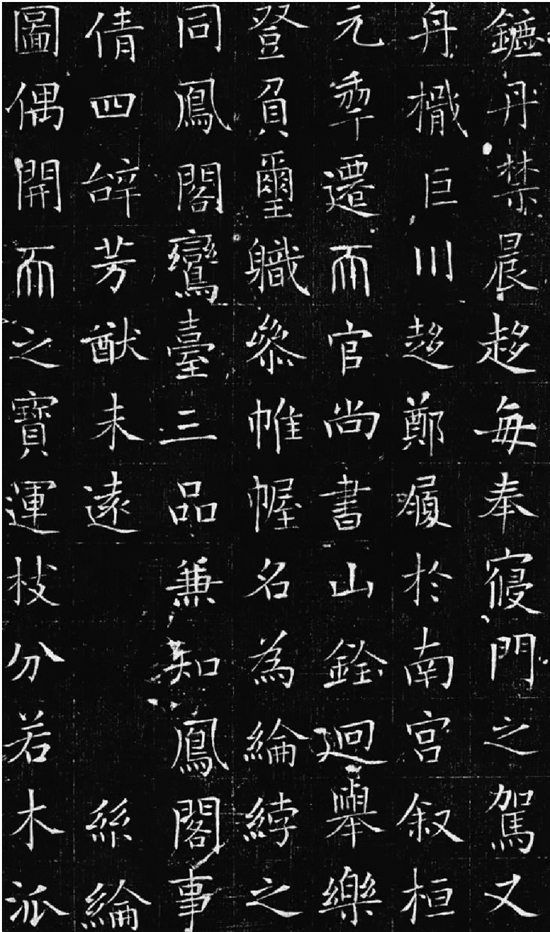 鑣丹禁晨趍每奉寢門之駕又
舟檝巨川趍鄭履於南宮叙桓
元𠡦遷𠀑官尚書山銓迴舉樂
登負璽職叅帷幄名為綸綍之
同鳳閣鸞臺三品兼知鳳閣事
倩四辝芳猷未遠 絲綸
圖偶開𠀑之寶運枝分若木派